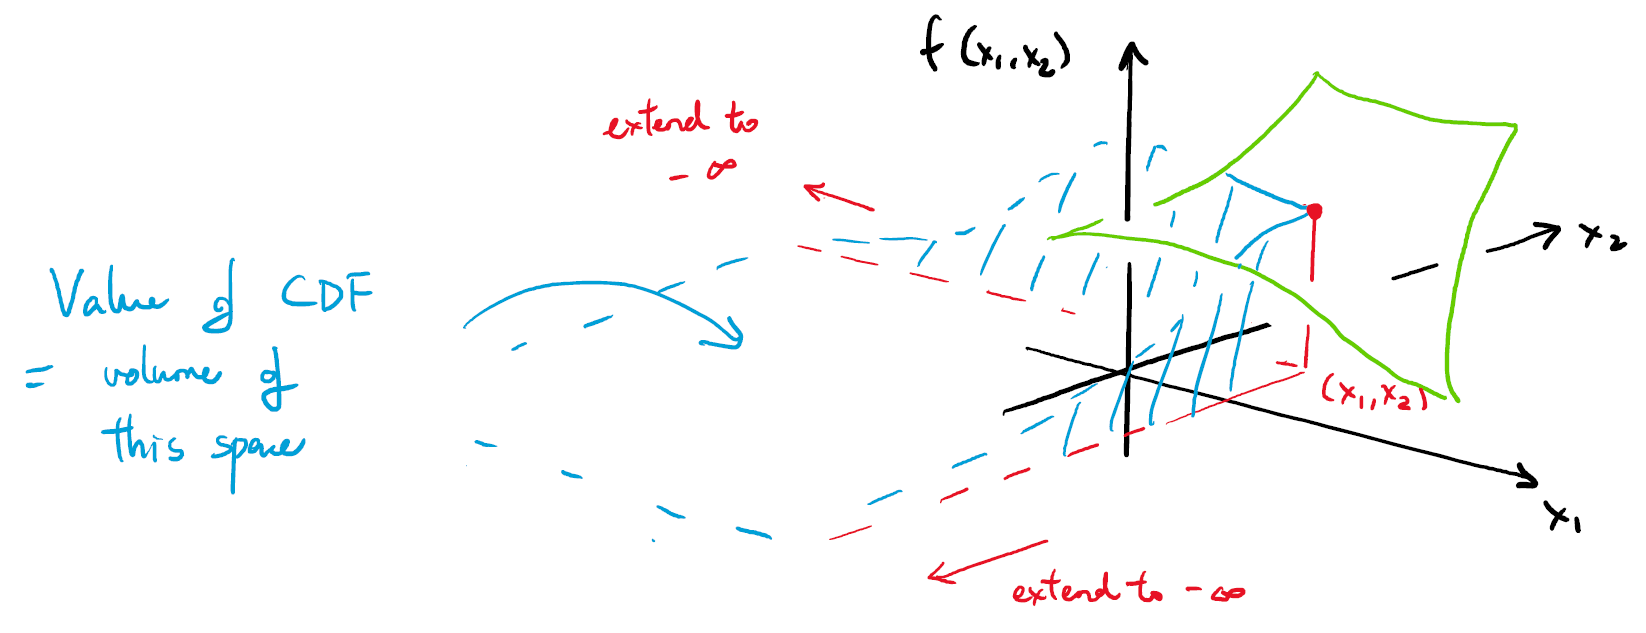 f(x₁,x₂)
extend to
- ∞
x₂
Value of CDF
= volume of
this space
(x₁,x₂)
x₁
extend to -∞